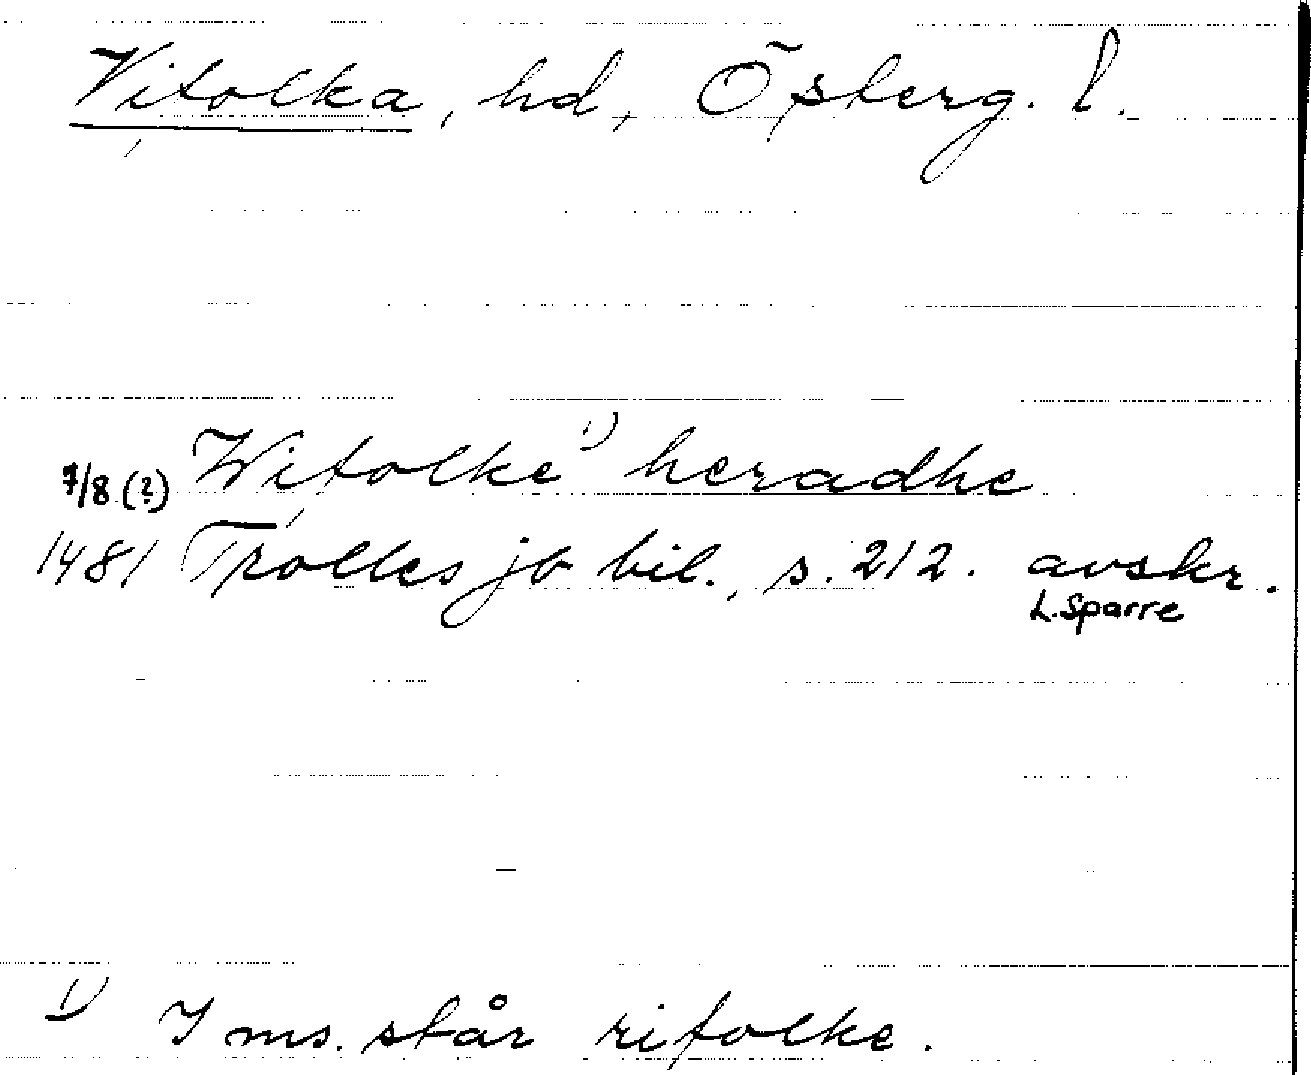 Vifolka, hd, Österg. l.
7/8 (?) Wifolke 1) heradhe
1481 Trolles jb bil., s. 212. avskr.
L. Sparre
1) I ms. står rifolke.